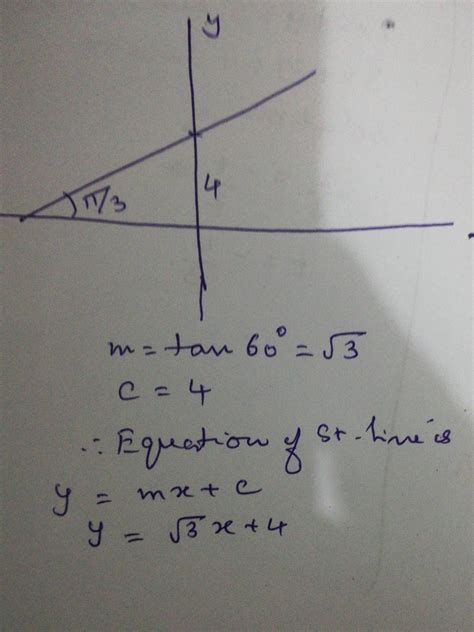 y
π/3
4
m = tan 60° = √3
c = 4
∴ Equation of St-line is
y = mx + c
y = √3 x + 4